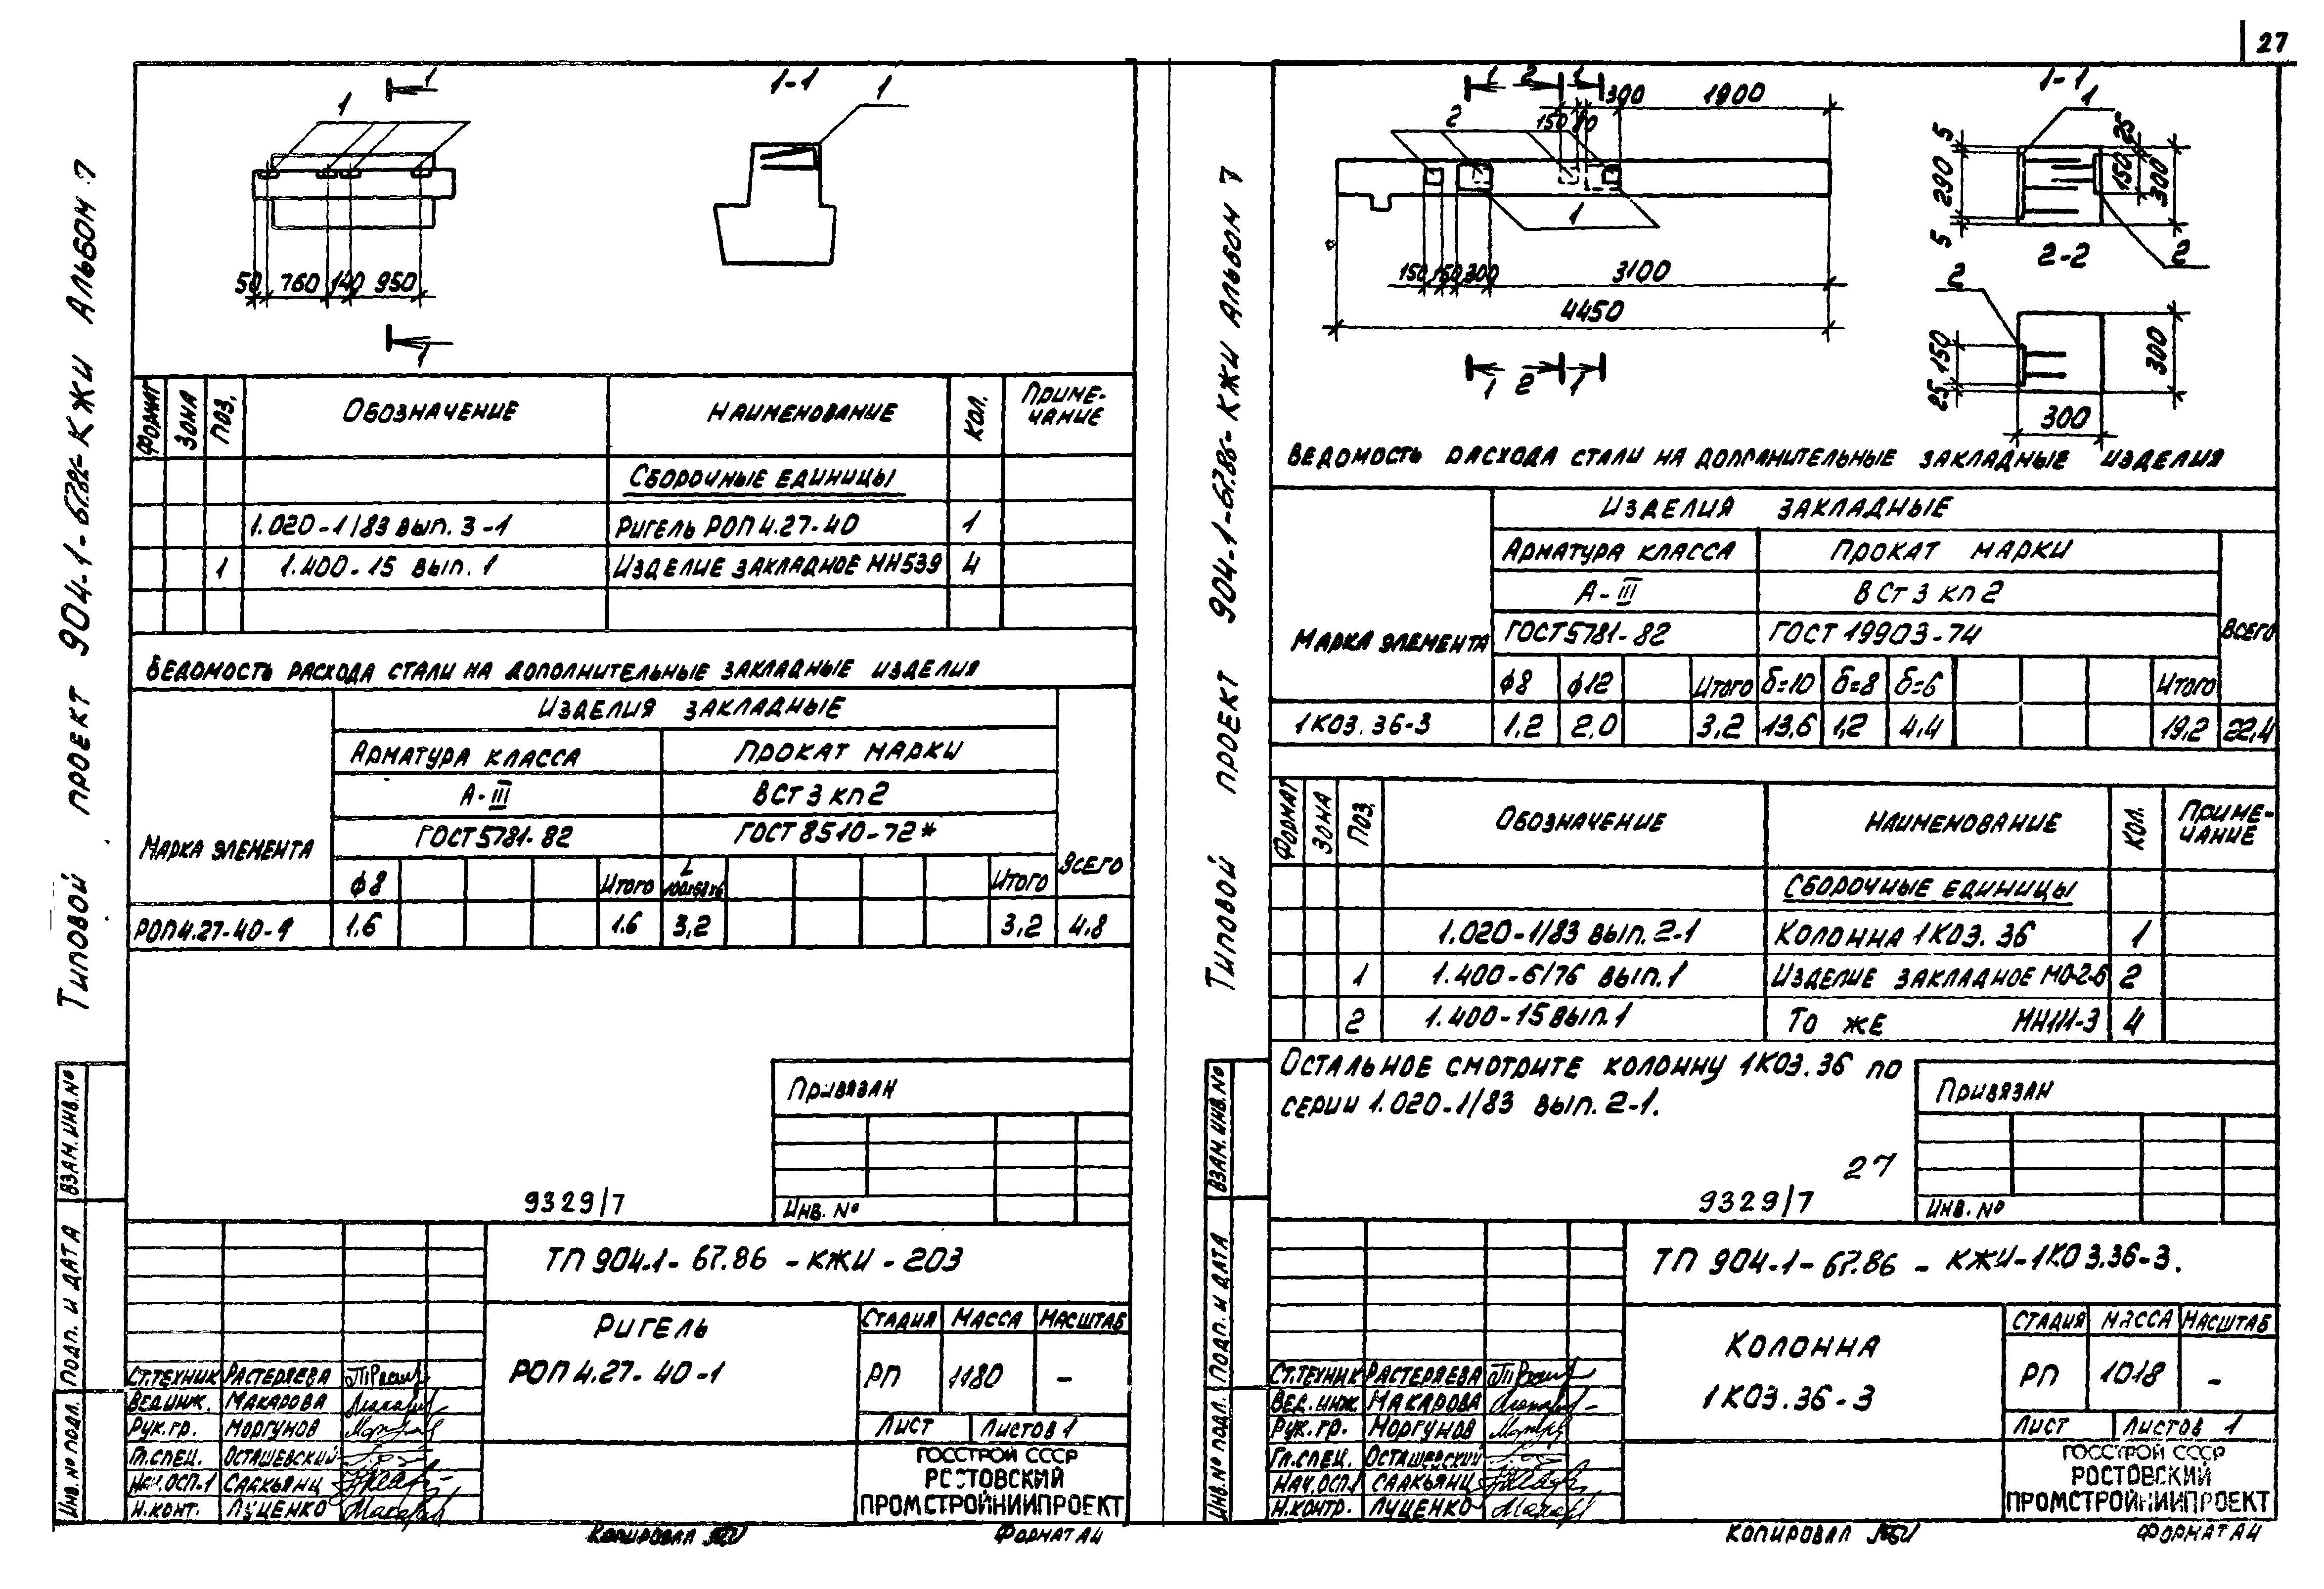 27
Типовой проект 904-1-67.86-КЖИ Альбом 7
1
1-1
1
1
50 760 140 950
1
Формат
Зона
Поз.
Обозначение
Наименование
Кол.
Приме-
чание
Сборочные единицы
1.020-1/83 вып. 3-1 Ригель РОП 4.27-40 1
1 1.400-15 вып. 1 Изделие закладное МН539 4
Ведомость расхода стали на дополнительные закладные изделия
Марка элемента
Изделия закладные
Арматура класса Прокат марки
А-III ВСт3кп2
ГОСТ 5781-82 ГОСТ 8510-72*
Всего
ϕ8 Итого L 100x63x6 Итого
РОП4.27-40-1 1.6 1.6 3,2 3,2 4.8
Привязан
9329/7
Инв. №
ТП 904-1-67.86-КЖИ-203
Ригель
РОП 4.27-40-1
Стадия Масса Масштаб
РП 1180 –
Лист Листов 1
ГОССТРОЙ СССР
РОСТОВСКИЙ
ПРОМСТРОЙНИИПРОЕКТ
Ст.техник Растеряева
Вед.инж. Макарова
Рук.гр. Моргунов
Гл.спец. Осташевский
Нач.ОСП.1 Саакьянц
Н.конт. Луценко
Взам. инв. №
Подп. и дата
Инв. № подл.
Копировал
Формат А4
Типовой проект 904-1-67.86-КЖИ Альбом 7
1 2 1
300 1900
150
2
1
150 150 300 3100
4450
1 2 1
1-1
1
5
290
5
25
150
300
2
2-2
2
25 150
300
300
Ведомость расхода стали на дополнительные закладные изделия
Марка элемента
Изделия закладные
Арматура класса Прокат марки
А-III ВСт3кп2
ГОСТ 5781-82 ГОСТ 19903-74
Всего
ϕ8 ϕ12 Итого δ=10 δ=8 δ=6 Итого
1КО3.36-3 1,2 2,0 3,2 13,6 1,2 4,4 19,2 22,4
Формат
Зона
Поз.
Обозначение
Наименование
Кол.
Приме-
чание
Сборочные единицы
1.020-1/83 вып. 2-1 Колонна 1КО3.36 1
1 1.400-6/76 вып. 1 Изделие закладное МО-2-6 2
2 1.400-15 вып. 1 То же МН111-3 4
Остальное смотрите колонну 1КО3.36 по
серии 1.020-1/83 вып. 2-1.
Привязан
27
9329/7
Инв. №
ТП 904-1-67.86-КЖИ-1КО3.36-3.
Колонна
1КО3.36-3
Стадия Масса Масштаб
РП 1018 –
Лист Листов 1
ГОССТРОЙ СССР
РОСТОВСКИЙ
ПРОМСТРОЙНИИПРОЕКТ
Ст.техник Растеряева
Вед.инж. Макарова
Рук.гр. Моргунов
Гл.спец. Осташевский
Нач.ОСП.1 Саакьянц
Н.контр. Луценко
Взам. инв. №
Подп. и дата
Инв. № подл.
Копировал
Формат А4